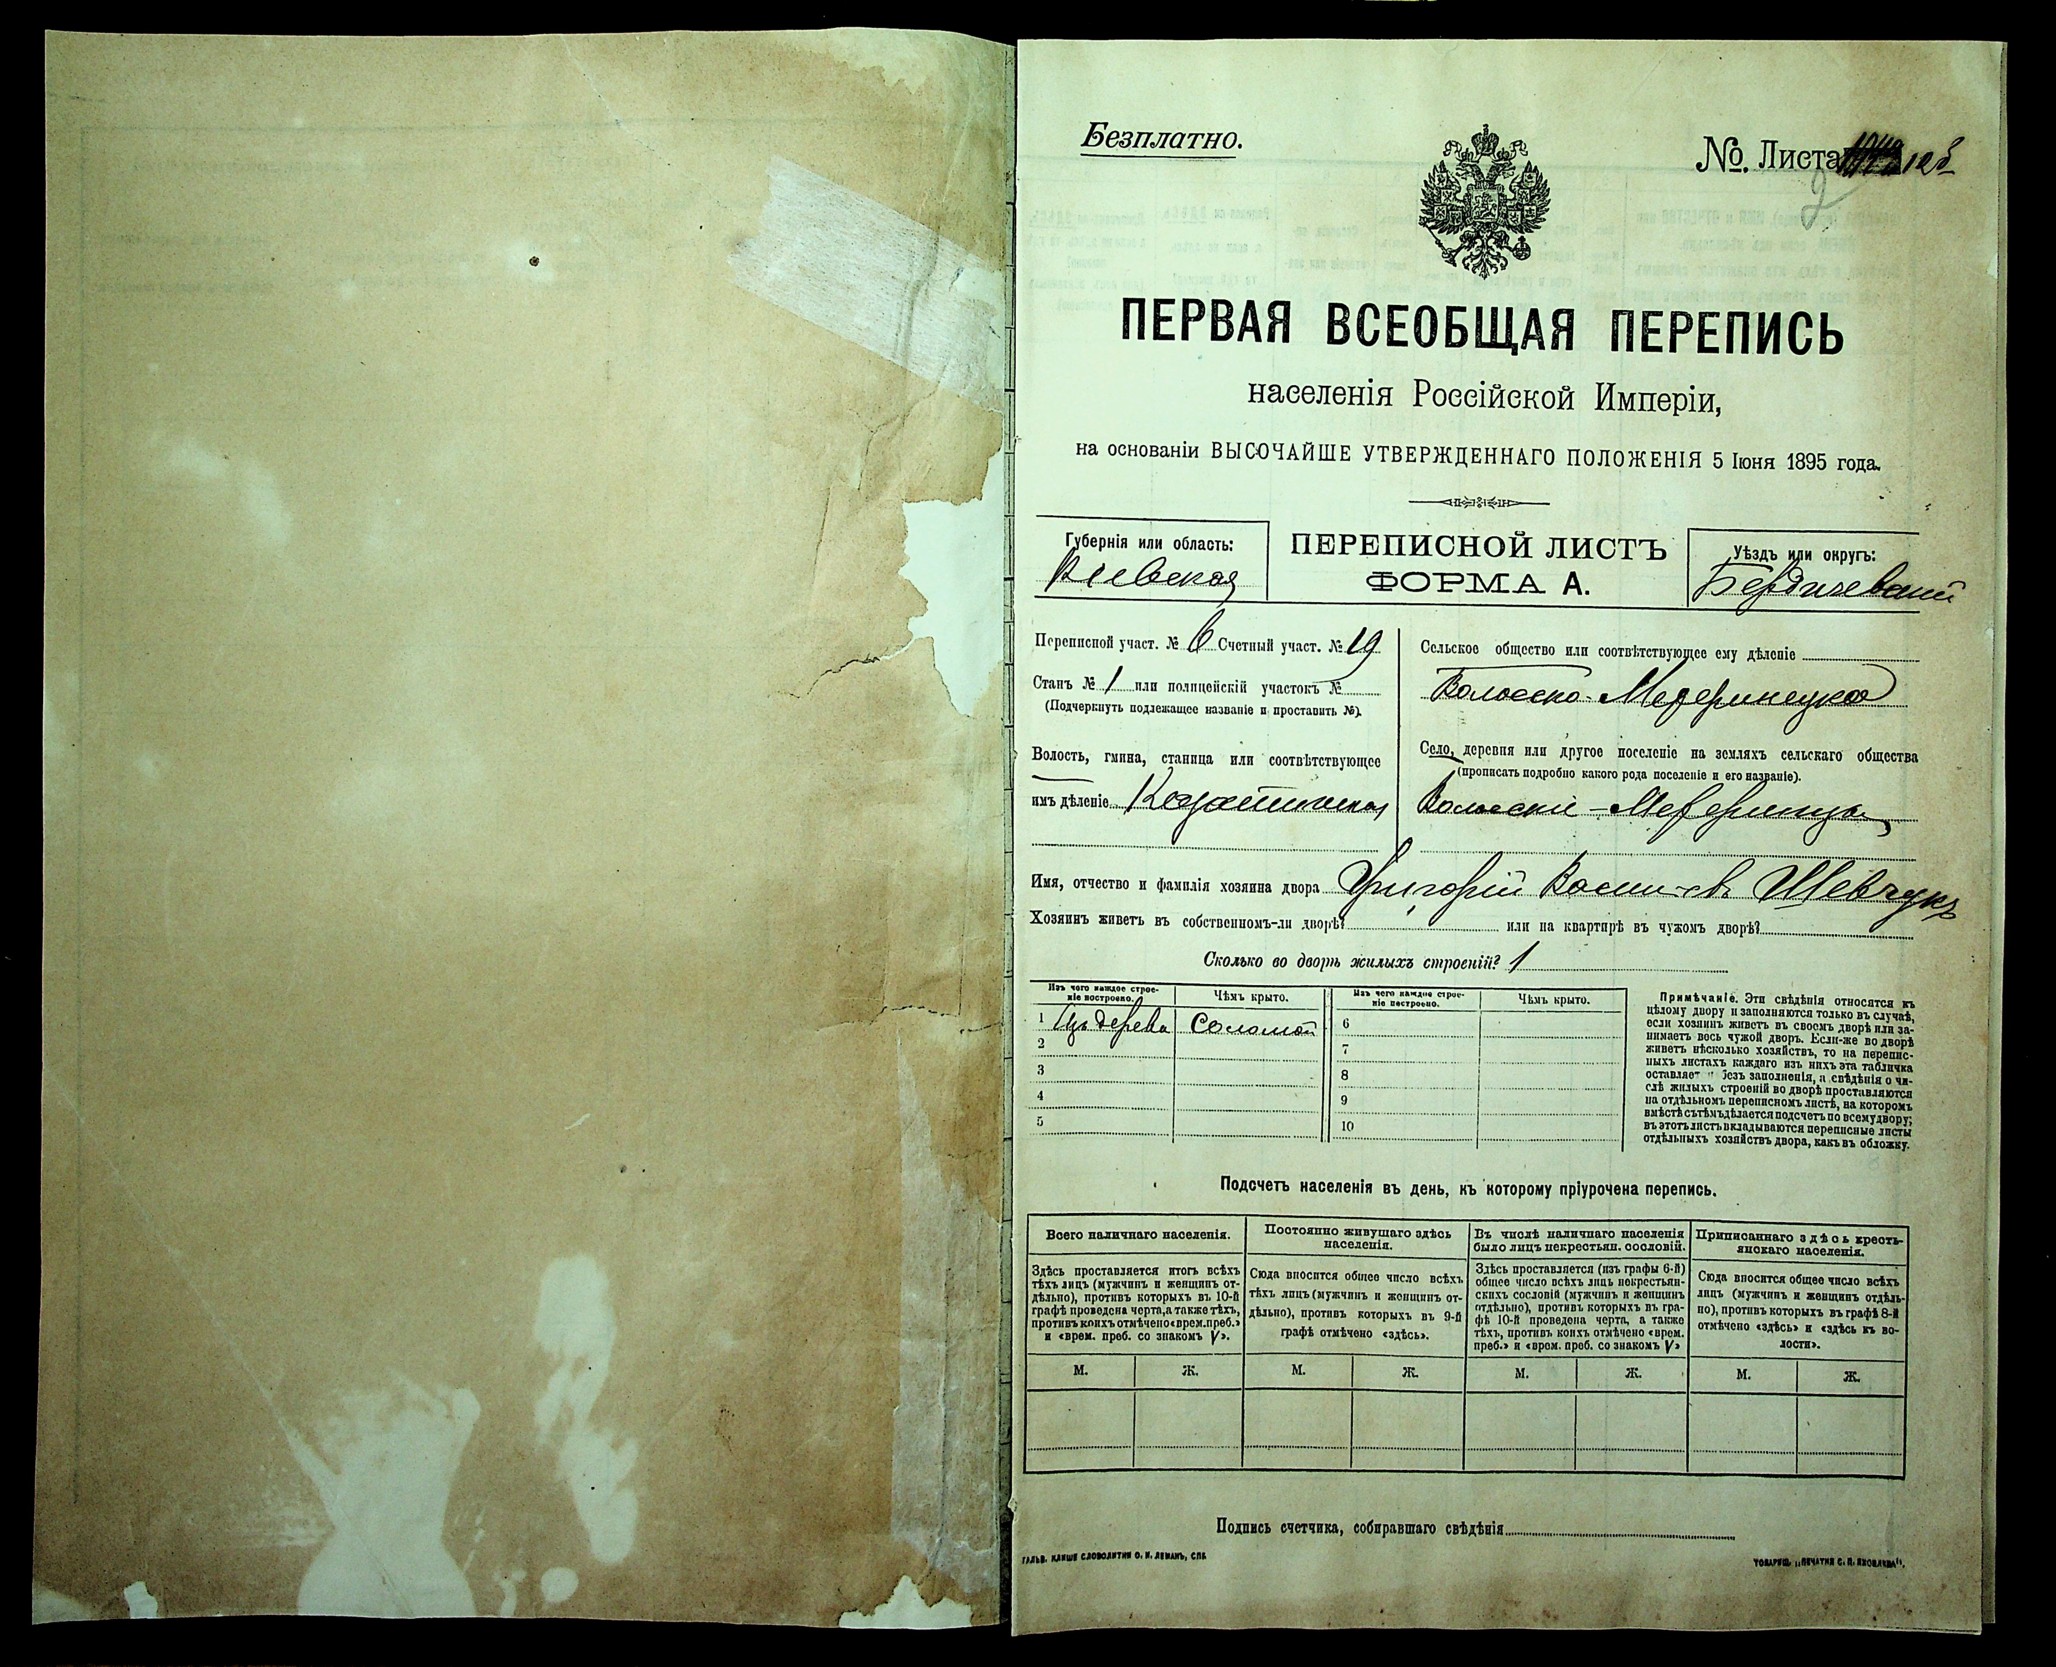 Безплатно.
№. Листа 125
2
ПЕРВАЯ ВСЕОБЩАЯ ПЕРЕПИСЬ
населенія Россійской Имперіи,
на основаніи ВЫСОЧАЙШЕ УТВЕРЖДЕННАГО ПОЛОЖЕНІЯ 5 Іюня 1895 года.
Губернія или область:
Кіевская
ПЕРЕПИСНОЙ ЛИСТЪ
ФОРМА А.
Уѣздъ или округъ:
Бердичевскій
Переписной участ. № 6 Счетный участ. № 19
Станъ № 1 или полицейскій участокъ №
(Подчеркнуть подлежащее названіе и проставить №).
Волость, гмина, станица или соотвѣтствующее
имъ дѣленіе Козятинская
Сельское общество или соотвѣтствующее ему дѣленіе
Волосско-Медеринецкое
Село, деревня или другое поселеніе на земляхъ сельскаго общества
(прописать подробно какого рода поселеніе и его названіе).
Имя, отчество и фамилія хозяина двора Григорій Васильевъ Шевчукъ
Хозяинъ живетъ въ собственномъ-ли дворѣ? или на квартирѣ въ чужомъ дворѣ?
Сколько во дворѣ жилыхъ строеній? 1
Изъ чего каждое строе-
ніе построено.
Чѣмъ крыто.
1 Изъ дерева Соломой
2
3
4
5
Изъ чего каждое строе-
ніе построено.
Чѣмъ крыто.
6
7
8
9
10
Примѣчаніе. Эти свѣдѣнія относятся къ
цѣлому двору и заполняются только въ случаѣ,
если хозяинъ живетъ въ своемъ дворѣ или за-
нимаетъ весь чужой дворъ. Если-же во дворѣ
живетъ нѣсколько хозяйствъ, то на перепис-
ныхъ листахъ каждаго изъ нихъ эта табличка
оставляет безъ заполненія, а свѣдѣнія о чи-
слѣ жилыхъ строеній во дворѣ проставляются
на отдѣльномъ переписномъ листѣ, на которомъ
вмѣстѣ съ тѣмъ дѣлается подсчетъ по всему двору;
въ этотъ листъ вкладываются переписные листы
отдѣльныхъ хозяйствъ двора, какъ въ обложку.
Подсчетъ населенія въ день, къ которому пріурочена перепись.
Всего наличнаго населенія.
Здѣсь проставляется итогъ всѣхъ
тѣхъ лицъ (мужчинъ и женщинъ от-
дѣльно), противъ которыхъ въ 10-й
графѣ проведена черта, а также тѣхъ,
противъ коихъ отмѣчено «врем. преб.»
и «врем. преб. со знакомъ V».
М. Ж.
Постоянно живущаго здѣсь
населенія.
Сюда вносится общее число всѣхъ
тѣхъ лицъ (мужчинъ и женщинъ от-
дѣльно), противъ которыхъ въ 9-й
графѣ отмѣчено «здѣсь».
М. Ж.
Въ числѣ наличнаго населенія
было лицъ некрестьян. сословій.
Здѣсь проставляется (изъ графы 6-й)
общее число всѣхъ лицъ некрестьян-
скихъ сословій (мужчинъ и женщинъ
отдѣльно), противъ которыхъ въ гра-
фѣ 10-й проведена черта, а также
тѣхъ, противъ коихъ отмѣчено «врем.
преб.» и «врем. преб. со знакомъ V»
М. Ж.
Приписаннаго здѣсь кресть-
янскаго населенія.
Сюда вносится общее число всѣхъ
лицъ (мужчинъ и женщинъ отдѣль-
но), противъ которыхъ въ графѣ 8-й
отмѣчено «здѣсь» и «здѣсь къ во-
лости».
М. Ж.
Подпись счетчика, собиравшаго свѣдѣнія
ГАЛЬВ. КЛИШЕ СЛОВОЛИТНИ О. И. ЛЕМАНЪ, СПБ.
ТОВАРИЩ. „ПЕЧАТНЯ С. П. ЯКОВЛЕВА".